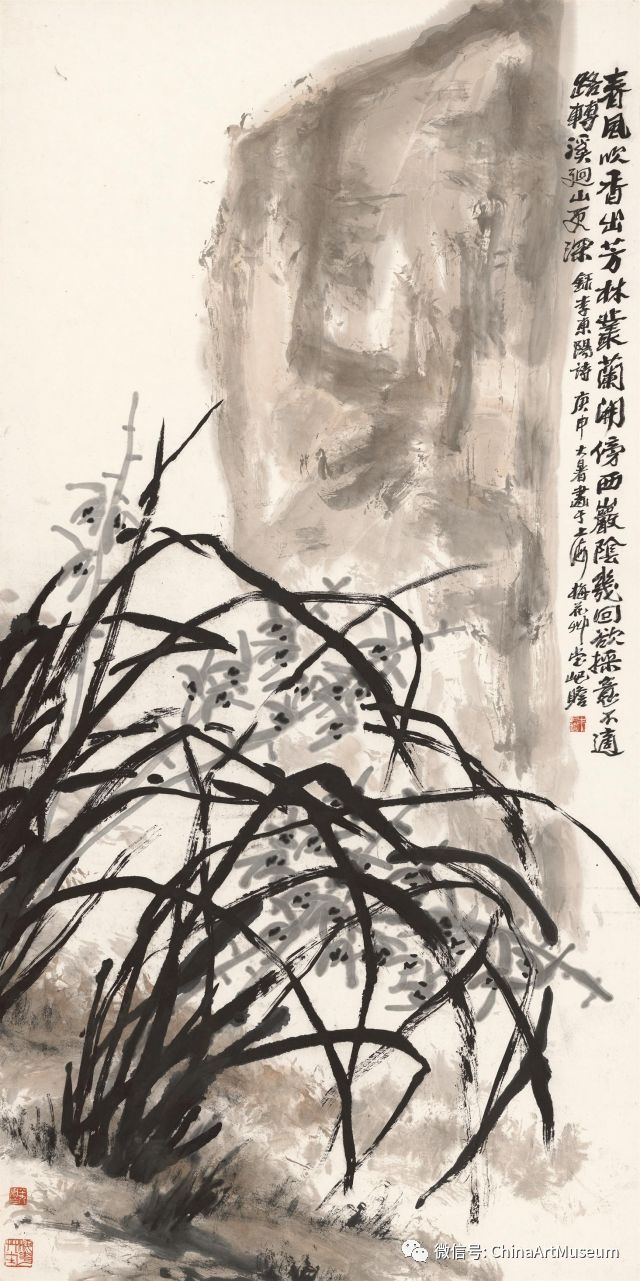 春风吹香出芳林丛兰开傍西巖陰幾回欲採意不適
路轉溪迴山更深 錄李東陽詩 庚申大暑畫于上海梅花草堂屺瞻
微信号: ChinaArtMuseum